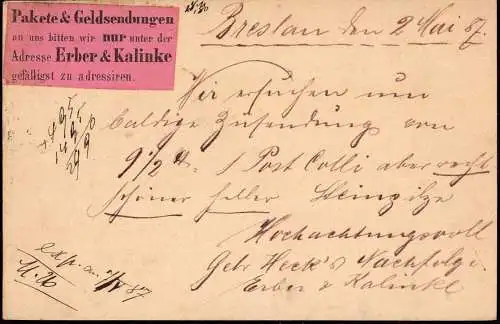 Pakete & Geldsendungen
an uns bitten wir nur unter der
Adresse Erber & Kalinke
gefälligst zu adressiren.
Breslau den 2 Mai 87.
Wir ersuchen um
baldige Zusendung von
9 1/2 1 Post Colli aber recht
schöner heller Steinpilze
Hochachtungsvoll
Gebr Heck's Nachfolge
Erber & Kalinke
87